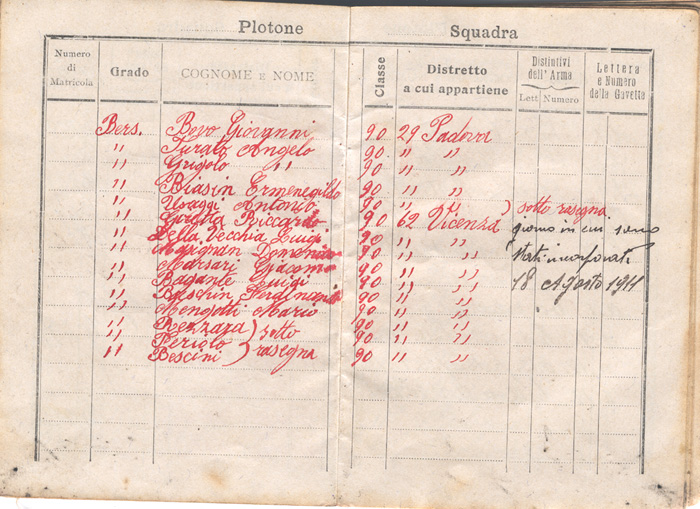 Plotone Squadra
Numero di Matricola Grado COGNOME E NOME Classe Distretto a cui appartiene Distintivi dell'Arma Lett. Numero Lettera e Numero della Gavetta
Bers. Bovo Giovanni 90 29 Padova
" Turato Angelo 90 " "
" Grigolo " 90 " "
" Biasin Ermenegildo 90 " "
" Antonio 90 " " ) sotto rasegna
" Riccardo 90 62 Vicenza giorno in cui sono
" Della Vecchia Luigi 90 " "
" Domenico 90 " " stati incorporati
" Marsari Giacomo 90 " "
" Bagante Luigi 90 " " 18 Agosto 1911
" Ferdinando 90 " "
" Mengotti Mario 90 " "
" Rezzara ) sotto 90 " "
" Periolo 90 " "
" Bescini ) rasegna 90 " "